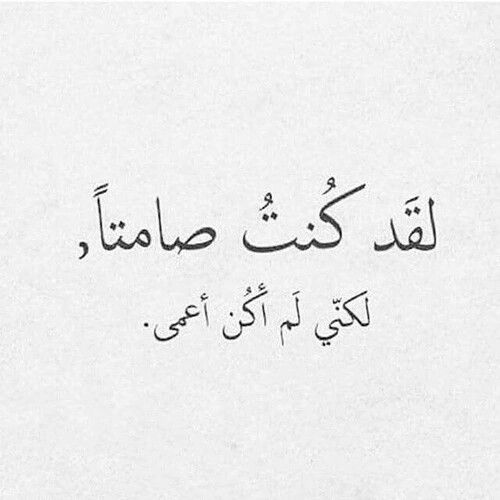 لقَد كُنتُ صامتاً,
لَكنّي لَم أكُن أعمى.